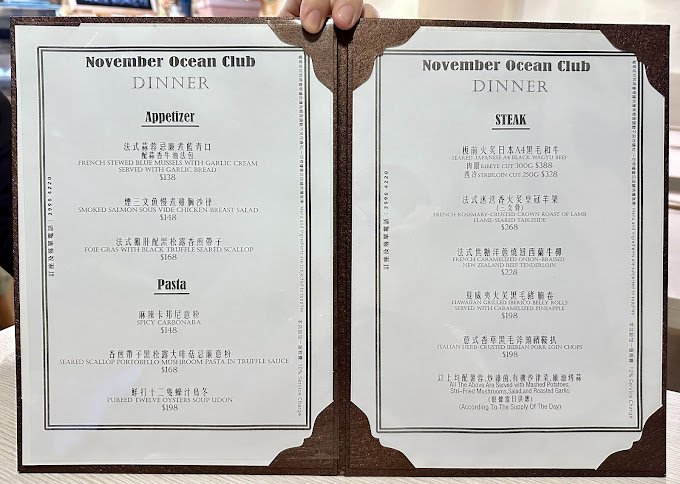 November Ocean Club
DINNER
Appetizer
法式蒜蓉忌廉煮藍青口
配蒜香牛油法包
FRENCH STEWED BLUE MUSSELS WITH GARLIC CREAM
SERVED WITH GARLIC BREAD
$138
煙三文魚慢煮雞胸沙律
SMOKED SALMON SOUS VIDE CHICKEN BREAST SALAD
$148
法式鵝肝配黑松露香煎帶子
FOIE GRAS WITH BLACK TRUFFLE SEARED SCALLOP
$168
Pasta
麻辣卡邦尼意粉
SPICY CARBONARA
$148
香煎帶子黑松露大啡菇忌廉意粉
SEARED SCALLOP PORTOBELLO MUSHROOM PASTA IN TRUFFLE SAUCE
$168
鮮打十二隻蠔汁烏冬
PUREED TWELVE OYSTERS SOUP UDON
$198
訂座及落單電話：3998 4220
10% Service Charge
November Ocean Club
DINNER
STEAK
板前火炙日本A4黑毛和牛
SEARED JAPANESE A4 BLACK WAGYU BEEF
肉眼RIBEYE CUT 300G $388
西冷STRIPLOIN CUT 250G $328
法式迷迭香火炙皇冠羊架
(三支骨)
FRENCH ROSEMARY-CRUSTED CROWN ROAST OF LAMB
FLAME-SEARED TABLESIDE
$268
法式焦糖洋蔥燒紐西蘭牛柳
FRENCH CARAMELIZED ONION-BRAISED
NEW ZEALAND BEEF TENDERLOIN
$228
夏威夷火炙黑毛豬腩卷
HAWAIIAN GRILLED IBERICO BELLY ROLLS
SERVED WITH CARAMELIZED PINEAPPLE
$198
意式香草黑毛洋頭豬鞍扒
ITALIAN HERB-CRUSTED IBERIAN PORK LOIN CHOPS
$198
以上均配薯蓉,炒雜菌,有機沙律菜,橄油烤蒜
All The Above Are Served with Mashed Potatoes,
Stri-Fried Mushrooms,Salad,and Roasted Garlic
(根據當日供應)
(According To The Supply Of The Day)
訂座及落單電話：3998 4220
10% Service Charge